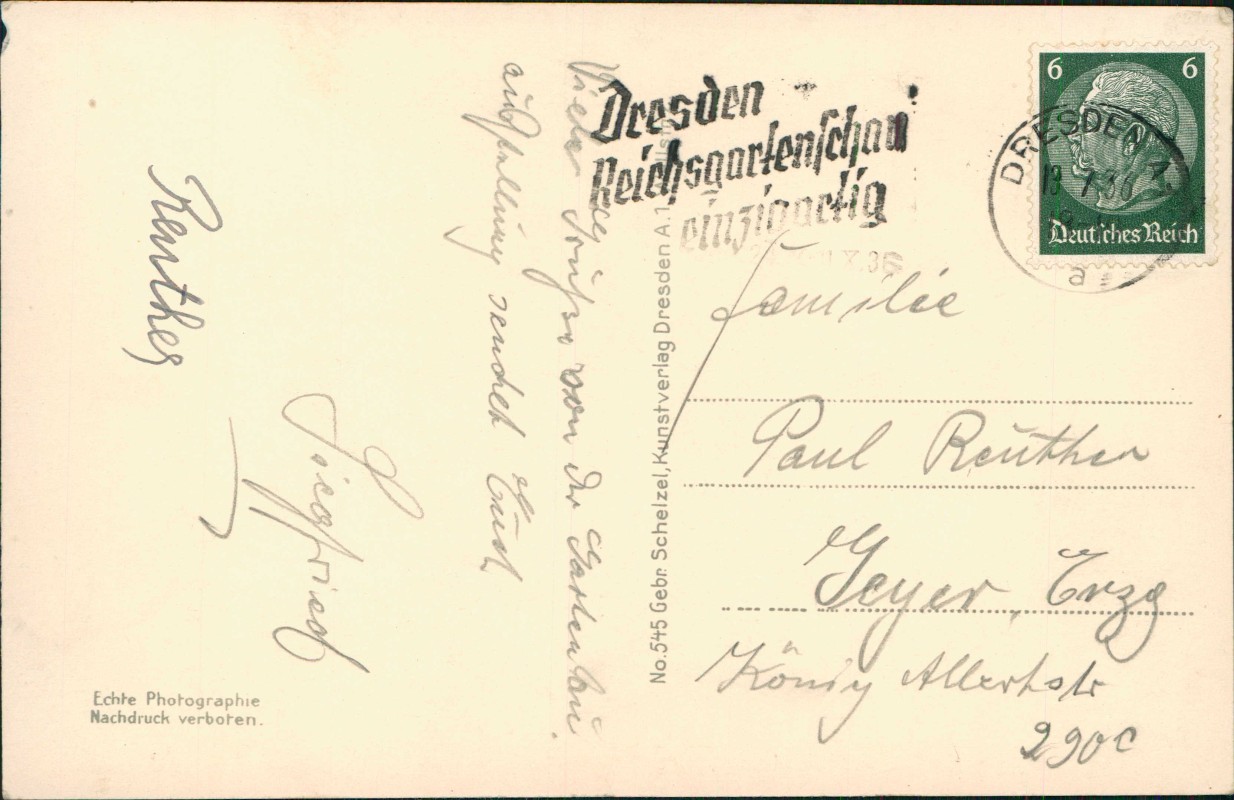 Viele Grüße von der Gartenbau
ausstellung sendet Euch
Siegfried
Reuther
Echte Photographie
Nachdruck verboten.
No.545 Gebr. Schelzel, Kunstverlag Dresden A.1
Dresden
Reichsgartenschau
einzigartig
7.36
6 6
Deutsches Reich
DRESDEN A
19 7.36
a
Familie
Paul Reuther
Geyer, Erzg
König Albertstr
290c